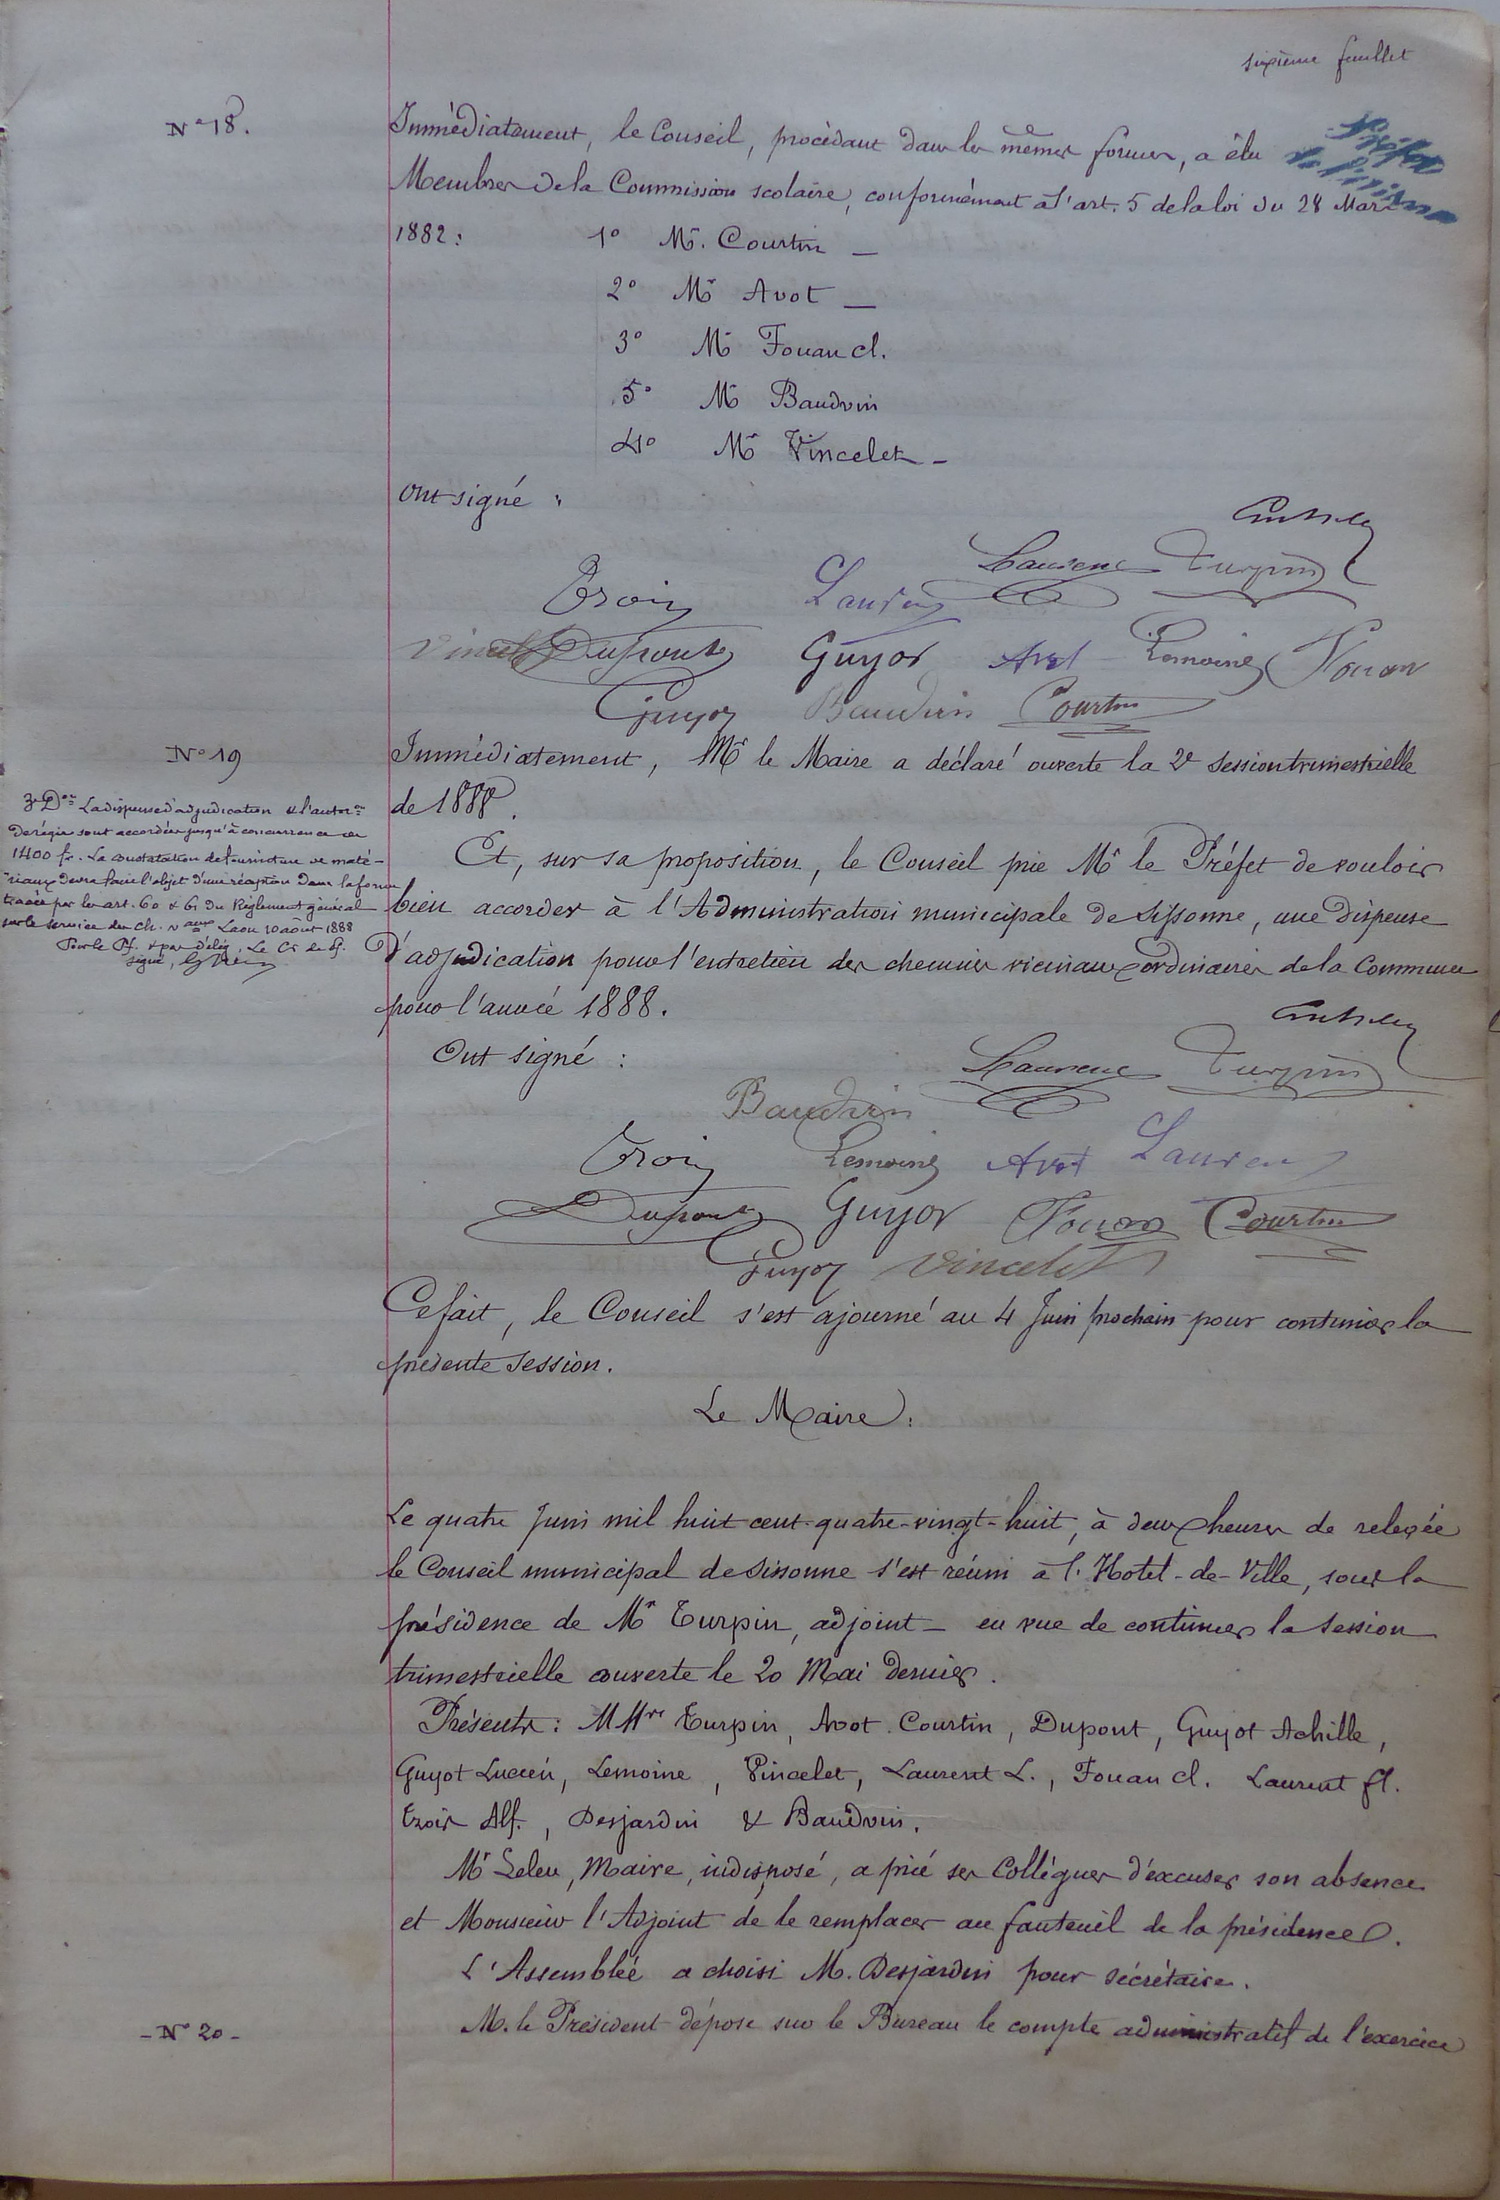 sixième feuillet
N° 18.
Immédiatement, le Conseil, procédant dans les mêmes formes, a élu
Membres de la Commission scolaire, conformément à l'art. 5 de la loi du 28 Mars
1882 : 1° Mr. Courtin —
2° Mr Avot —
3° Mr Fouan cl.
5° Mr Baudvin
4° Mr Vincelet —
Ont signé :
Laurent Turpin
Trois Laurent
Vincelet Dupont Guyot Avot Lemoine Fouan
Guyot Baudvin Courtin
N° 19
Immédiatement, Mr le Maire a déclaré ouverte la 2e session trimestrielle
de 1888.
Et, sur sa proposition, le Conseil prie Mr le Préfet de vouloir
bien accorder à l'Administration municipale de Sissonne, une dispense
d'adjudication pour l'entretien des chemins vicinaux ordinaires de la Commune
pour l'année 1888.
La dispense d'adjudication & l'autor.on
de régie sont accordées jusqu'à concurrence de
1400 fr. La constatation de fourniture de maté-
riaux devra faire l'objet d'une réception dans la forme
tracée par les art. 60 & 61 du Règlement général
sur le service des ch. v.aux Laon 10 août 1888
Pour le Pf. & par délég. Le Cr de Pf.
signé,
Ont signé :
Laurent Turpin
Baudvin
Trois Lemoine Avot Laurent
Dupont Guyot Fouan Courtin
Guyot Vincelet
Ce fait, le Conseil s'est ajourné au 4 Juin prochain pour continuer la
présente session.
Le Maire :
Le quatre Juin mil huit cent quatre-vingt-huit, à deux heures de relevée
le Conseil municipal de Sissonne s'est réuni à l'Hotel-de-Ville, sous la
présidence de Mr Turpin, adjoint — en vue de continuer la session
trimestrielle ouverte le 20 Mai dernier.
Présents : MMrs Turpin, Avot. Courtin, Dupont, Guyot Achille,
Guyot Lucien, Lemoine, Vincelet, Laurent L., Fouan cl. Laurent fl.
Trois Alf., Desjardin & Baudvin.
Mr Leleu, Maire, indisposé, a prié ses Collègues d'excuser son absence
et Monsieur l'Adjoint de le remplacer au fauteuil de la présidence.
L'Assemblée a choisi M. Desjardin pour sécrétaire.
- N° 20 -
M. le Président dépose sur le Bureau le compte administratif de l'exercice